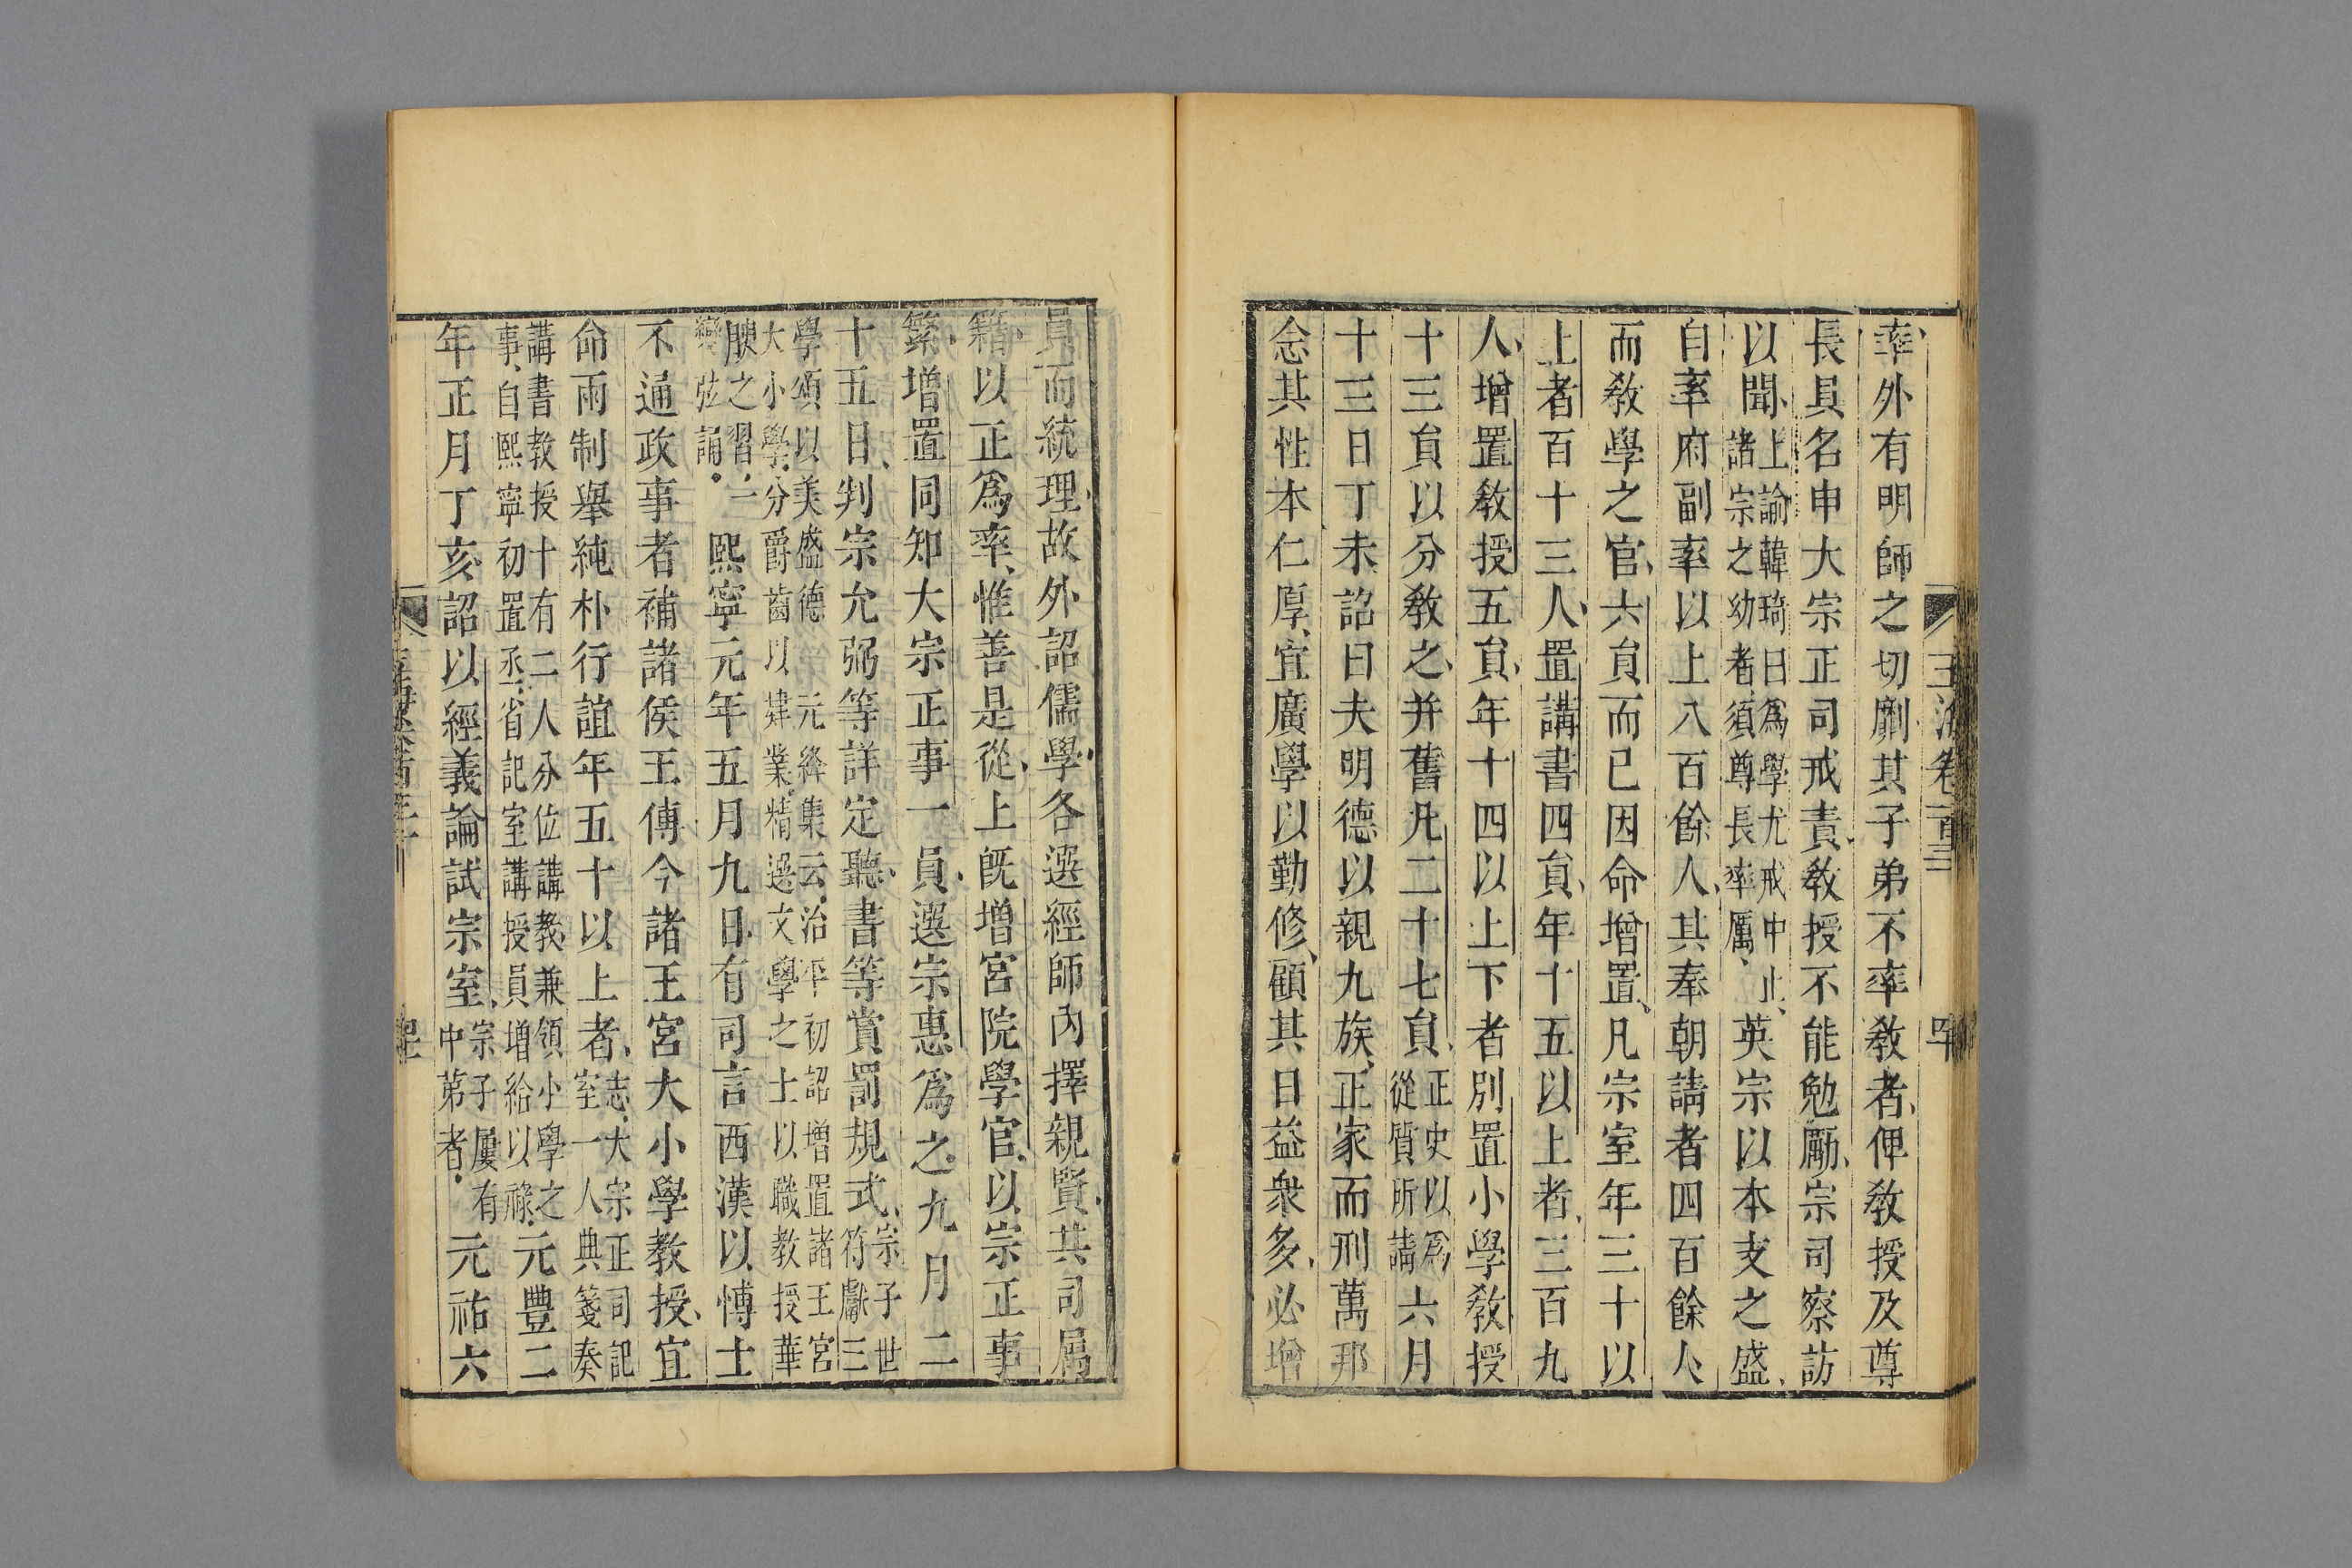 率外有明師之切劘其子弟不率教者俾教授及尊
長具名申大宗正司戒責教授不能勉勵宗司察訪
以聞上諭韓琦曰爲學尤戒中止
諸宗之幼者須尊長率厲英宗以本支之盛
自率府副率以上八百餘人其奉朝請者四百餘人
而敎學之官六負而已因命增置凡宗室年三十以
上者百十三人置講書四負年十五以上者三百九
人增置敎授五負年十四以上下者別置小學敎授
十三負以分敎之并舊凡二十七負正史以爲
從質所講六月
十三日丁未詔曰夫明德以親九族正家而刑萬邦
念其性本仁厚宜廣學以勤修顧其日益衆多必增
玉海卷一百三十
四十
員而統理故外詔儒學各選經師內擇親賢共司属
籍以正爲率惟善是從上旣增宮院學官以宗正事
繁增置同知大宗正事一員選宗惠爲之九月二
十五日判宗允弼等詳定聽書等賞罰規式宗子世
符獻三
學頌以美盛德元絳集云治平初詔增置諸王宮
大小學分爵齒以肄業精選文學之士以職教授華
腴之習一
變弦誦熙寧元年五月九日有司言西漢以博士
不通政事者補諸侯王傅今諸王宮大小學教授宜
命兩制舉純朴行誼年五十以上者志大宗正司記
室一人典箋奏
講書教授十有二人分位講教兼領小學之
事自熙寧初置丞省記室講授員增給以祿元豐二
年正月丁亥詔以經義論試宗室宗子屢有
中第者元祐六